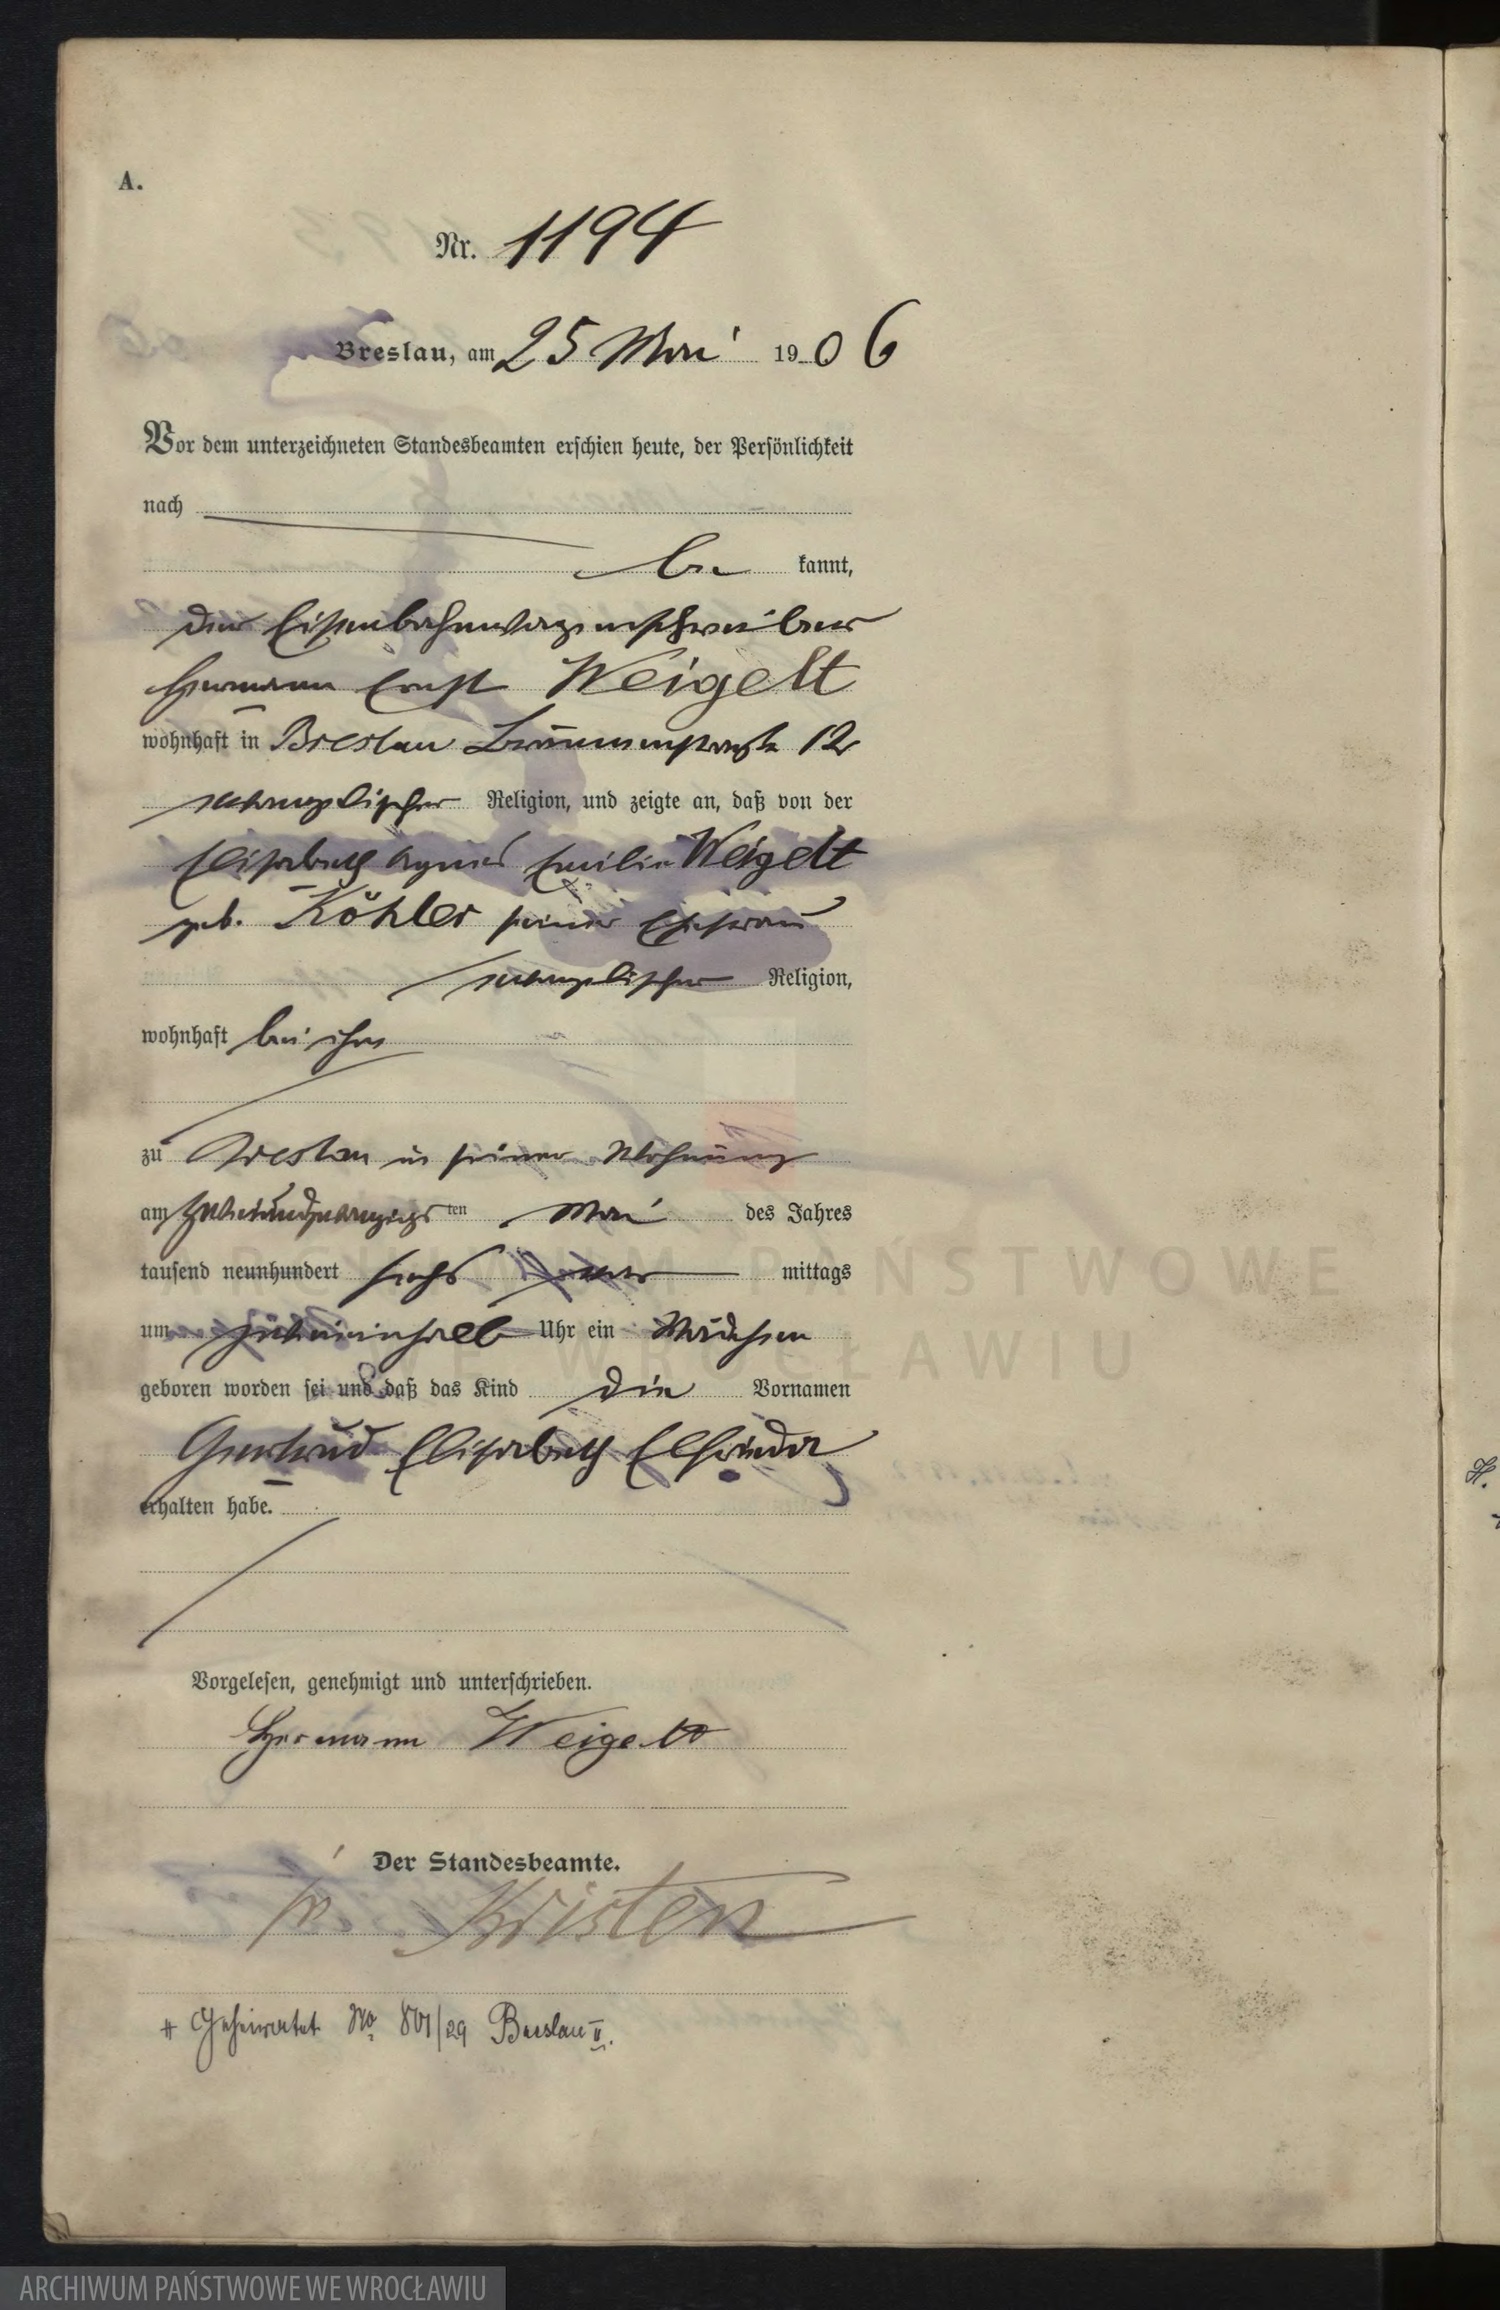 A.
Nr. 1194
Breslau, am 25 Mai 1906
Vor dem unterzeichneten Standesbeamten erschien heute, der Persönlichkeit
nach
be kannt,
der Eisenbahnwagenschreiber
Hermann Ernst Weigelt
wohnhaft in Breslau Brunnenstraße 12
evangelischer Religion, und zeigte an, daß von der
Elisabeth Agnes Emilie Weigelt
geb. Köhler seiner Ehefrau
evangelischer Religion,
wohnhaft bei ihm
zu Breslau in seiner Wohnung
am zweiundzwanzigsten Mai des Jahres
tausend neunhundert sechs mittags
um Uhr ein Mädchen
geboren worden sei und daß das Kind die Vornamen
Gertrud Elisabeth Elfrieda
erhalten habe.
Vorgelesen, genehmigt und unterschrieben.
Hermann Weigelt
Der Standesbeamte.
Kristen
# Geheiratet No 801/29 Breslau II.
H.
ARCHIWUM PAŃSTWOWE
WE WROCŁAWIU
ARCHIWUM PAŃSTWOWE WE WROCŁAWIU